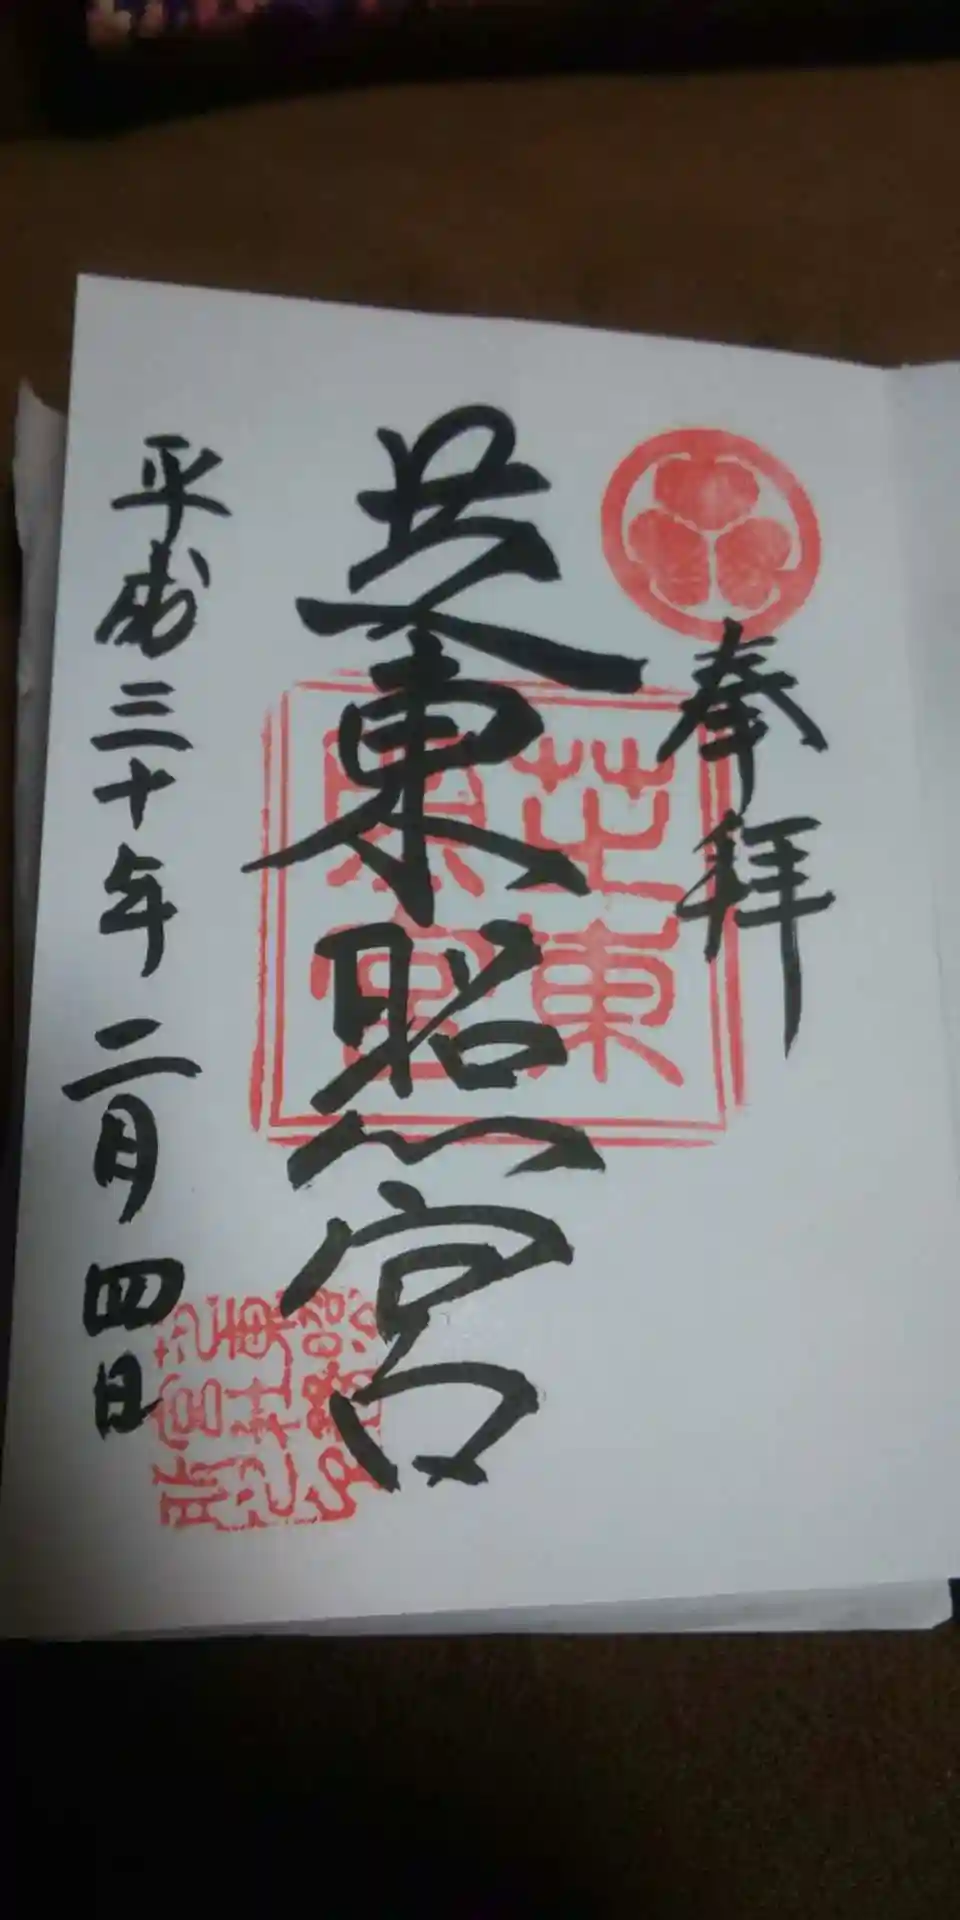 奉拝
芝東照宮
平成三十年二月四日
芝東
照宮